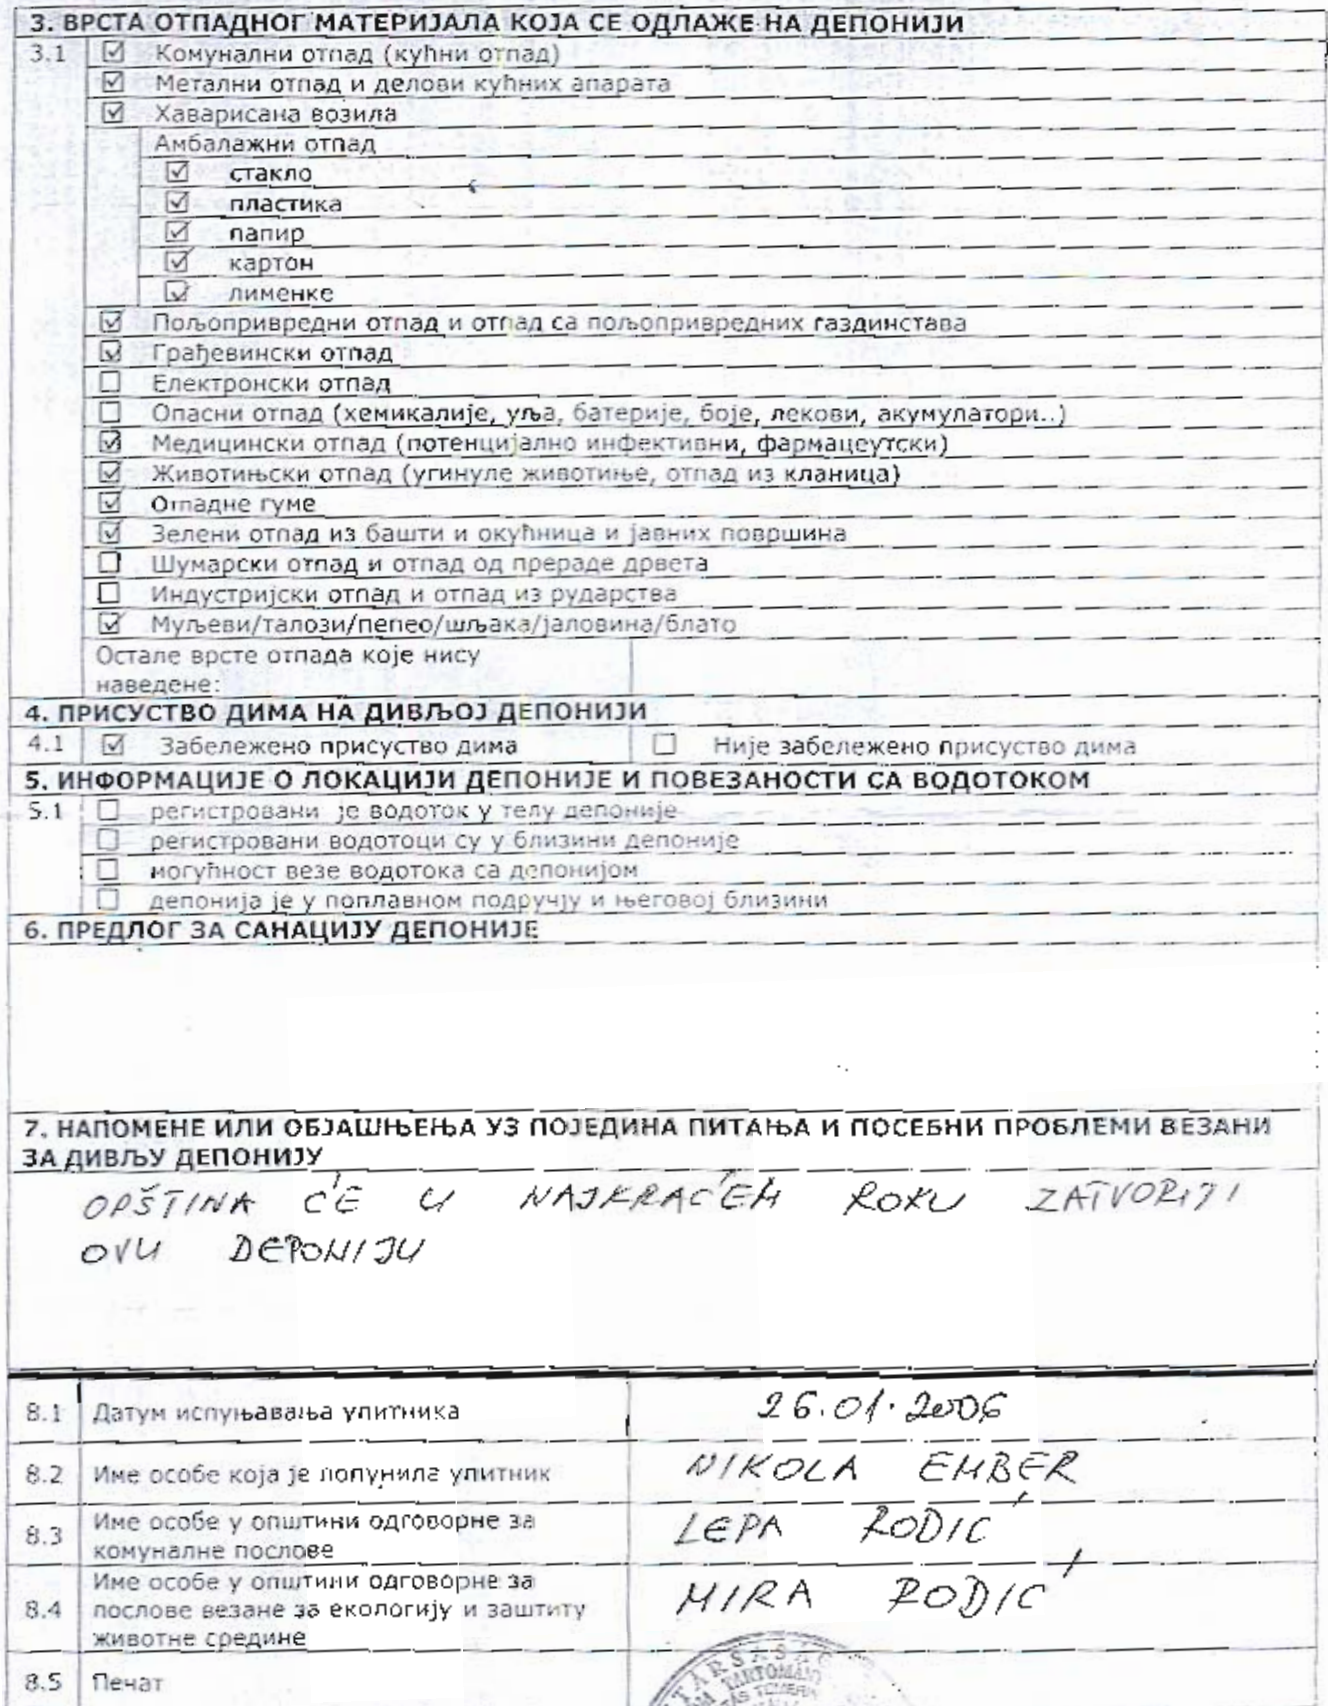 3. ВРСТА ОТПАДНОГ МАТЕРИЈАЛА КОЈА СЕ ОДЛАЖЕ НА ДЕПОНИЈИ
3.1 ☑ Комунални отпад (кућни отпад)
☑ Метални отпад и делови кућних апарата
☑ Хаварисана возила
Амбалажни отпад
☑ стакло
☑ пластика
☑ папир
☑ картон
☑ лименке
☑ Пољопривредни отпад и отпад са пољопривредних газдинстава
☑ Грађевински отпад
☐ Електронски отпад
☐ Опасни отпад (хемикалије, уља, батерије, боје, лекови, акумулатори..)
☑ Медицински отпад (потенцијално инфективни, фармацеутски)
☑ Животињски отпад (угинуле животиње, отпад из кланица)
☑ Отпадне гуме
☑ Зелени отпад из башти и окућница и јавних површина
☐ Шумарски отпад и отпад од прераде дрвета
☐ Индустријски отпад и отпад из рударства
☑ Муљеви/талози/пепео/шљака/јаловина/блато
Остале врсте отпада које нису
наведене:
4. ПРИСУСТВО ДИМА НА ДИВЉОЈ ДЕПОНИЈИ
4.1 ☑ Забележено присуство дима ☐ Није забележено присуство дима
5. ИНФОРМАЦИЈЕ О ЛОКАЦИЈИ ДЕПОНИЈЕ И ПОВЕЗАНОСТИ СА ВОДОТОКОМ
5.1 ☐ регистровани је водоток у телу депоније
☐ регистровани водотоци су у близини депоније
☐ могућност везе водотока са депонијом
☐ депонија је у поплавном подручју и његовој близини
6. ПРЕДЛОГ ЗА САНАЦИЈУ ДЕПОНИЈЕ
7. НАПОМЕНЕ ИЛИ ОБЈАШЊЕЊА УЗ ПОЈЕДИНА ПИТАЊА И ПОСЕБНИ ПРОБЛЕМИ ВЕЗАНИ
ЗА ДИВЉУ ДЕПОНИЈУ
OPŠTINA ĆE U NAJKRAĆEM ROKU ZATVORITI
OVU DEPONIJU
8.1 Датум испуњавања упитника 26.01.2006
8.2 Име особе која је попунила упитник NIKOLA EMBER
8.3 Име особе у општини одговорне за
комуналне послове LEPA RODIĆ
8.4 Име особе у општини одговорне за
послове везане за екологију и заштиту
животне средине MIRA RODIĆ
8.5 Печат